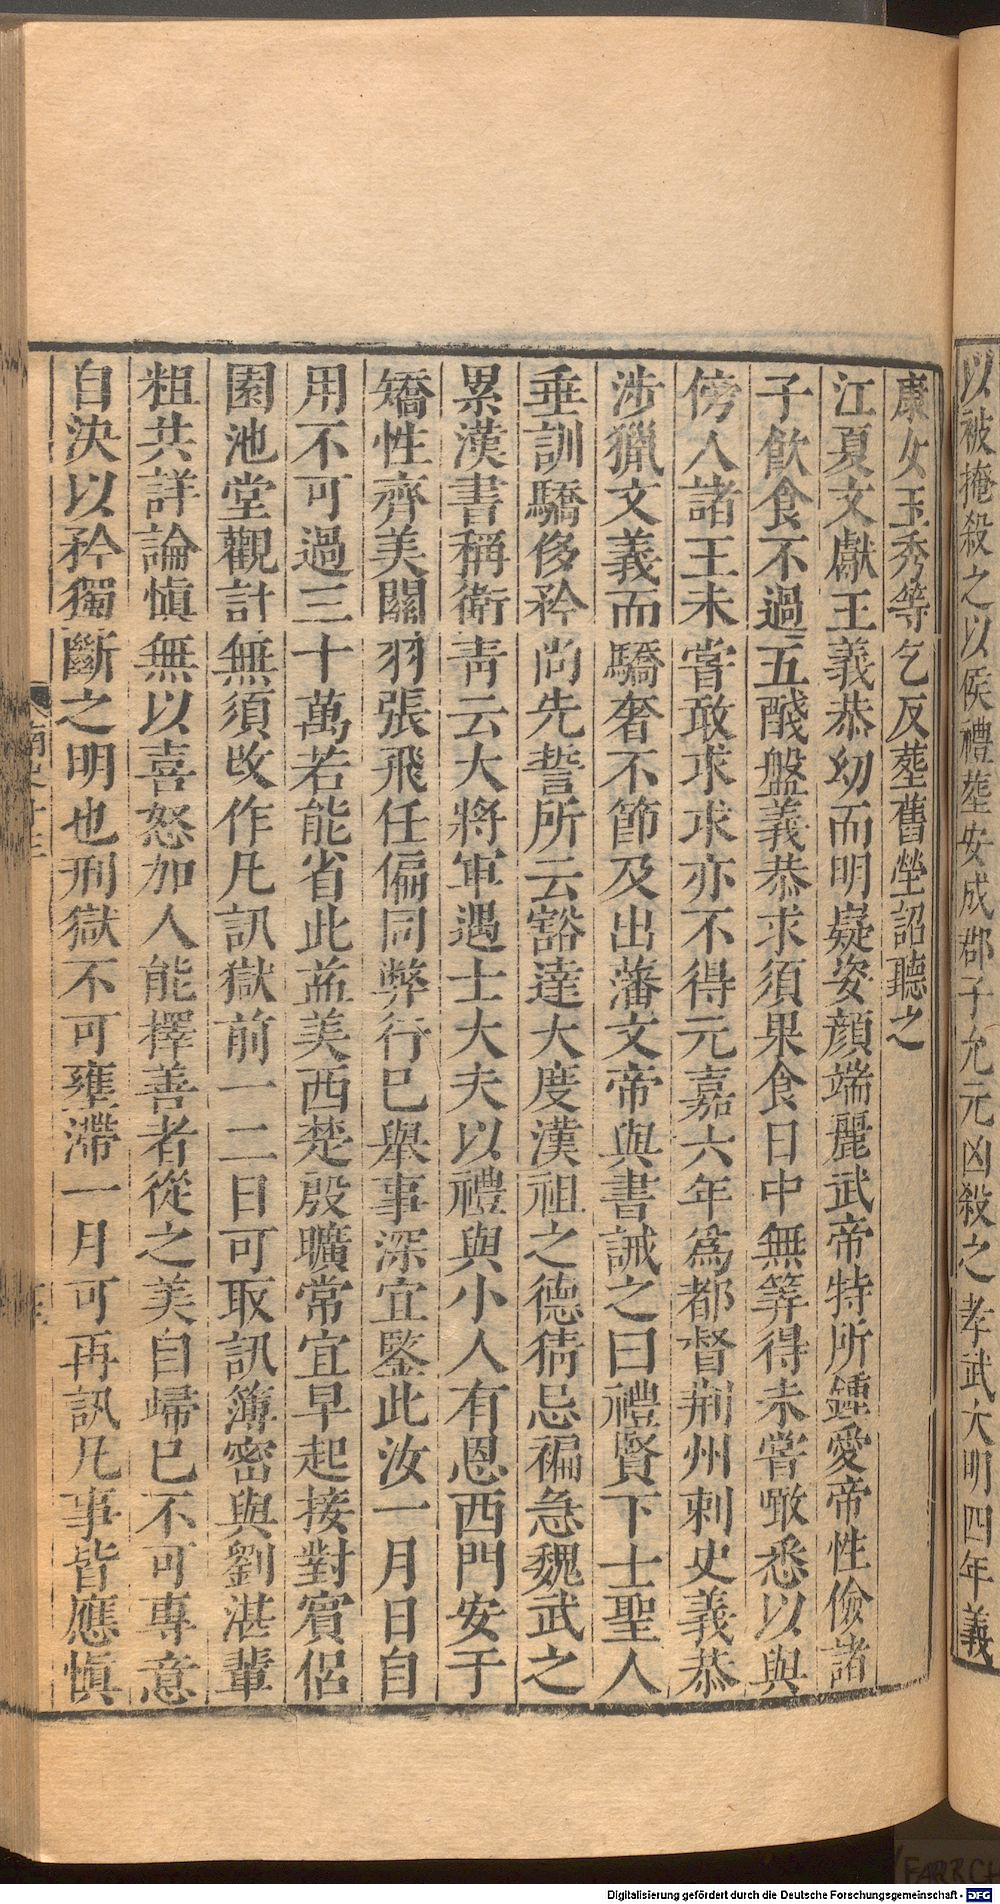 以被掩殺之以侯禮塟安成郡子允元凶殺之孝武大明四年義
康女玉秀等乞反塟舊塋詔聽之
江夏文獻王義恭幼而明嶷姿顔端麗武帝特所鍾愛帝性儉諸
子飲食不過五醆盤義恭求須果食日中無筭得未嘗噉悉以與
傍人諸王未嘗敢求求亦不得元嘉六年爲都督荆州刺史義恭
涉獵文義而驕奢不節及出藩文帝與書誡之曰禮賢下士聖人
垂訓驕侈矜尚先誓所云豁達大度漢祖之德猜忌褊急魏武之
累漢書稱衛青云大將軍遇士大夫以禮與小人有恩西門安于
矯性齊美關羽張飛任偏同弊行已舉事深宜鑒此汝一月日自
用不可過三十萬若能省此益美西楚殷曠常宜早起接對賓侶
園池堂觀計無須改作凡訊獄前一二日可取訊簿密與劉湛輩
粗共詳論愼無以喜怒加人能擇善者從之美自歸已不可專意
自決以矜獨斷之明也刑獄不可壅滯一月可再訊凡事皆應愼
Digitalisierung gefördert durch die Deutsche Forschungsgemeinschaft - DFG